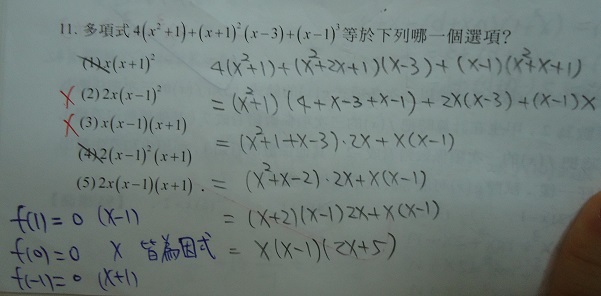 11. 多項式 4(x²+1)+(x+1)²(x-3)+(x-1)³ 等於下列哪一個選項?
(1) x(x+1)²
4(x²+1)+(x²+2x+1)(x-3)+(x-1)(x²+x+1)
X (2) 2x(x-1)²
=(x²+1)(4+x-3+x-1)+2x(x-3)+(x-1)x
X (3) x(x-1)(x+1)
=(x²+1+x-3)·2x+x(x-1)
(4) 2(x-1)²(x+1)
(5) 2x(x-1)(x+1).
=(x²+x-2)·2x+x(x-1)
f(1)=0 (x-1)
=(x+2)(x-1)2x+x(x-1)
f(0)=0 x 皆為因式
=x(x-1)(2x+5)
f(-1)=0 (x+1)